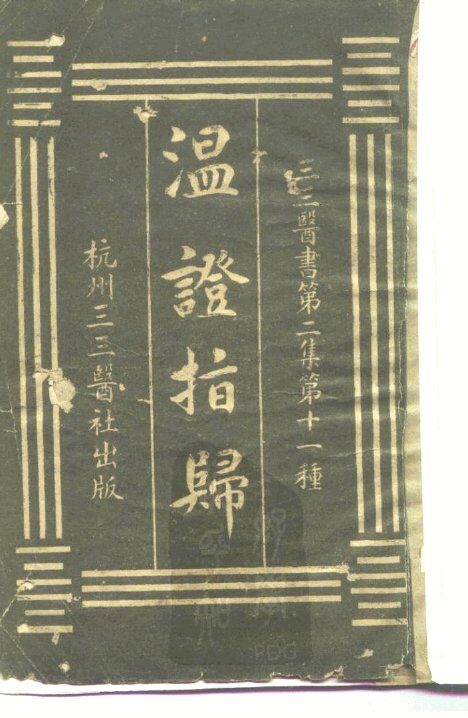 三三醫書第二集第十一種
溫證指歸
杭州三三醫社出版
PDG